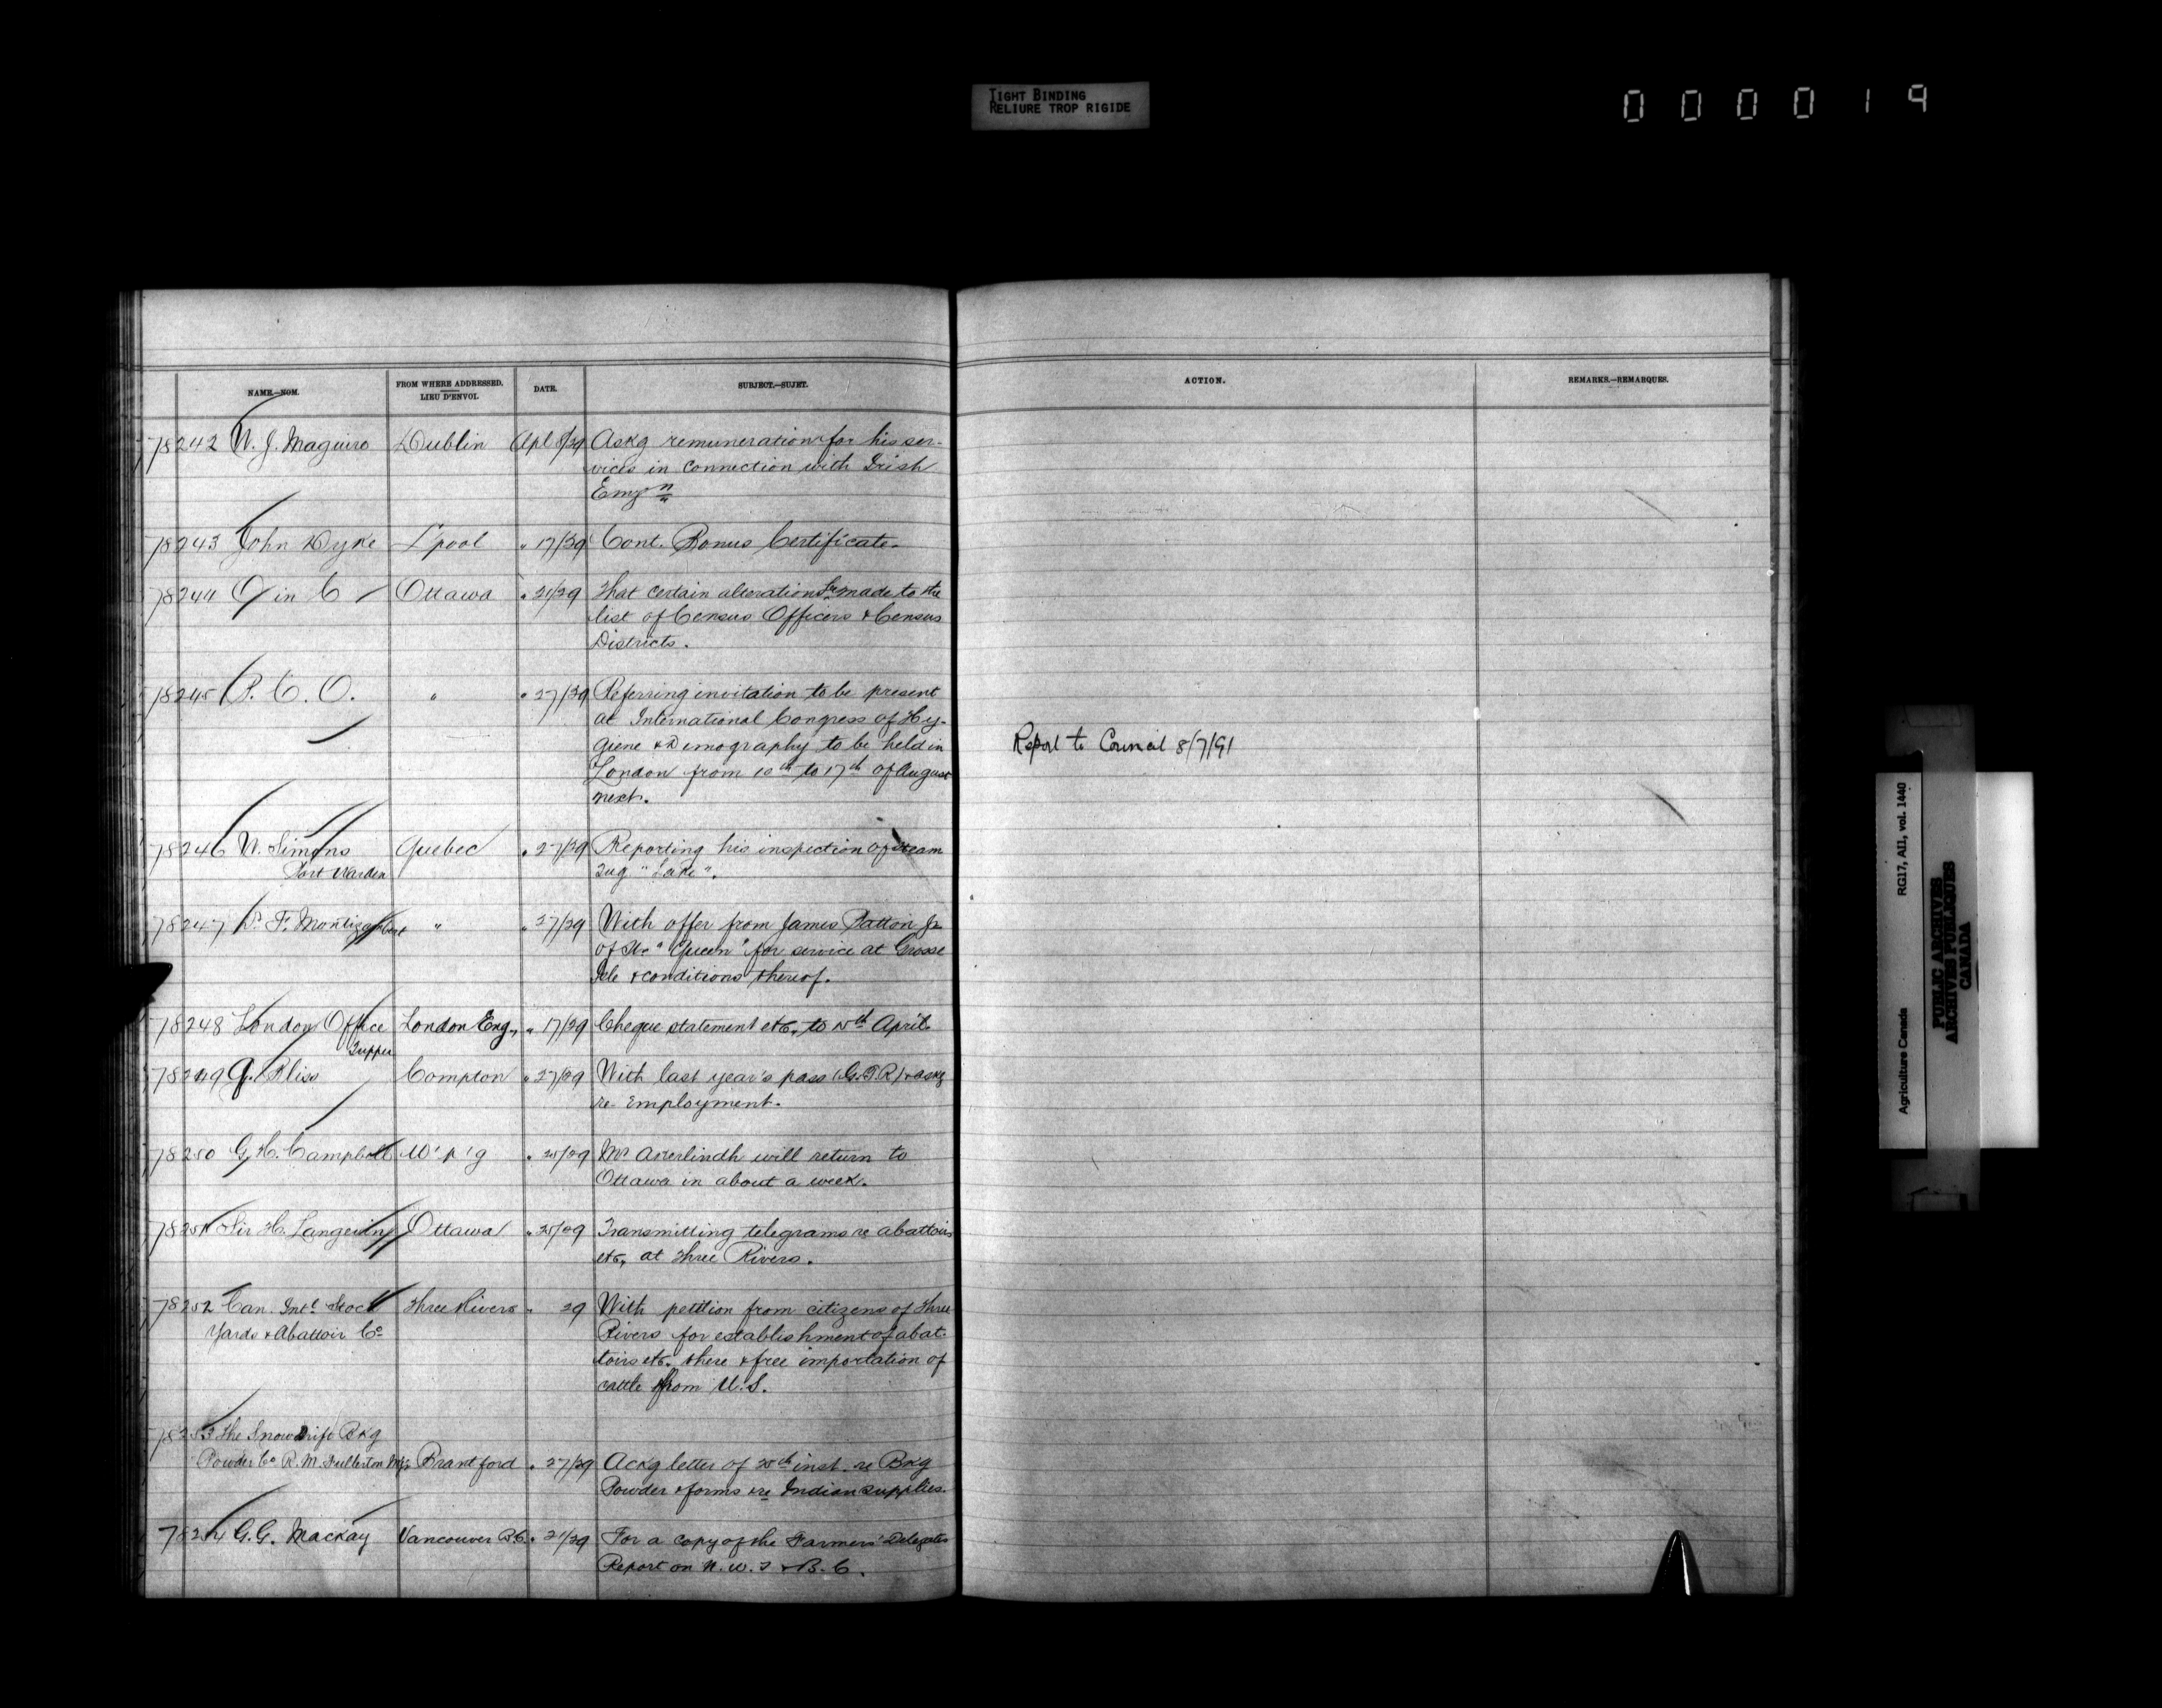 TIGHT BINDING
RELIURE TROP RIGIDE
000019
NAME.—NOM.
FROM WHERE ADDRESSED.
LIEU D'ENVOI.
DATE.
SUBJECT.—SUJET.
ACTION.
REMARKS.—REMARQUES.
78242 W. J. Maguire Dublin Apl 8/29 Askg remuneration for his ser-
vices in connection with Irish
Emgn
78243 John Dyke L'pool " 17/29 Cont. Bonus Certificate.
78244 O in C Ottawa " 21/29 That certain alterations be made to the
list of Census Officers & Census
Districts.
78245 P. C. O. " " 27/29 Referring invitation to be present
at International Congress of Hy-
giene & Demography to be held in
London from 10th to 17th of August
next.
Report to Council 8/7/91
78246 W. Simons Quebec " 27/29 Reporting his inspection of steam
Port Warden
Tug "Lake".
78247 Dr F. Montizambert " " 27/29 With offer from James Patton Jr
of Str "Queen" for service at Grosse
Isle & conditions thereof.
78248 London Office London Eng, " 17/29 Cheque statement etc, to 15th April.
Tupper
78249 G. Bliss Compton " 27/29 With last year's pass (G.T.R) & askg
re employment.
78250 G. H. Campbell W'p'g " 25/29 Mr Akerlindh will return to
Ottawa in about a week.
78251 Sir H. Langevin Ottawa " 25/29 Transmitting telegrams re abattoirs
etc, at Three Rivers.
78252 Can. Intl Stock Three Rivers " 29 With petition from citizens of Three
Yards & Abattoir Co
Rivers for establishment of abat-
toirs etc. there & free importation of
cattle from U.S.
78253 The Snow Drift Bkg
Powder Co R. M. Fullerton Mgr Brantford " 27/29 Ackg letter of 25th inst. re Bkg
Powder & forms re Indian supplies.
78254 G. G. Mackay Vancouver B.C. " 21/29 For a copy of the Farmers' Delegates
Report on N. W. T & B. C.
Agriculture Canada RG17, AII, vol. 1440
PUBLIC ARCHIVES
ARCHIVES PUBLIQUES
CANADA